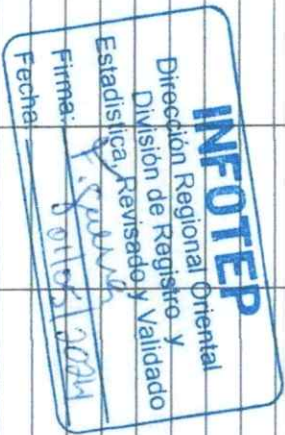 INFOTEP
Dirección Regional Oriental
División de Registro y
Estadistica, Revisado y Validado
Firma:
Fecha: